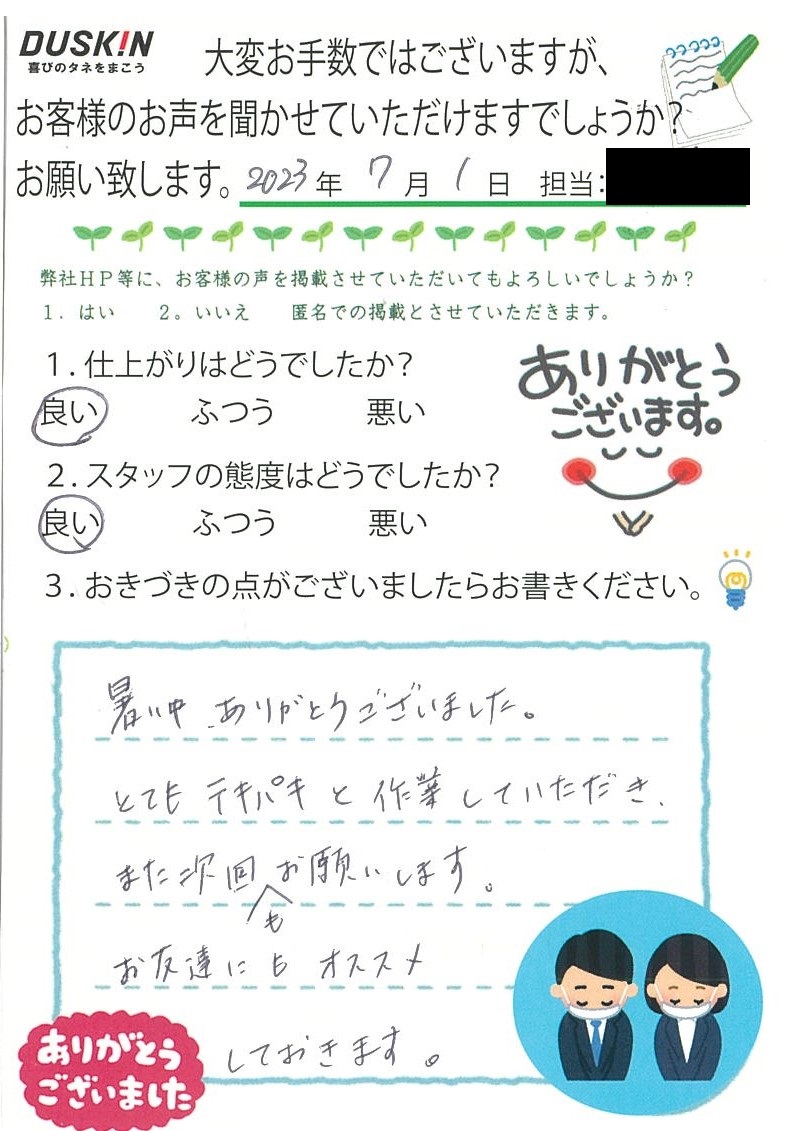 DUSK!N
喜びのタネをまこう
大変お手数ではございますが、
お客様のお声を聞かせていただけますでしょうか?
お願い致します。2023年 7月 1日 担当:
弊社HP等に、お客様の声を掲載させていただいてもよろしいでしょうか?
1. はい 2。いいえ 匿名での掲載とさせていただきます。
1.仕上がりはどうでしたか?
良い ふつう 悪い
ありがとう
ございます。
2.スタッフの態度はどうでしたか?
良い ふつう 悪い
3.おきづきの点がございましたらお書きください。
暑い中 ありがとうございました。
とても テキパキ と 作業 していただき、
また次回もお願いします。
お友達にも オススメ
しておきます。
ありがとう
ございました